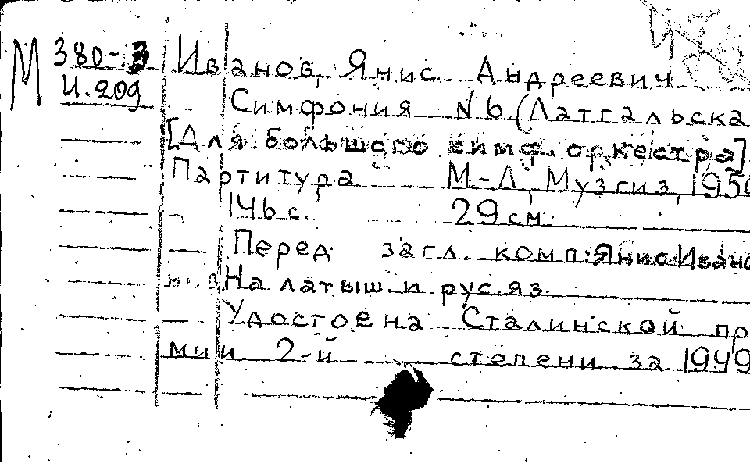 М 380-3 Иванов, Янис Андреевич
И.209 Симфония №6 (Латгальска
[Для большого симф. оркестра]
Партитура М-Л, Музгиз, 1950
146 с. 29 см.
Перед загл. комп: Янис Ивано
На латыш. и рус. яз.
Удостоена Сталинской пр
мии 2-й степени за 1949